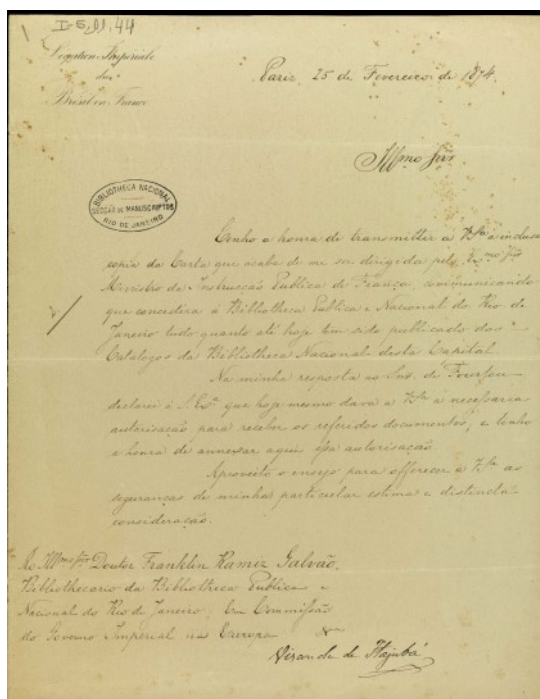 I-5,11,44
Legation Impériale
du
Brésil en France
Pariz, 25 de Fevereiro de 1874.
Illmo Snr
BIBLIOTHECA NACIONAL
SECÇÃO DE MANUSCRIPTOS
RIO DE JANEIRO
Tenho a honra de transmittir a V.Sa a inclusa
copia da Carta que acaba de me ser dirigida pelo Exmo Snr
Ministro da Instrucção Publica de França, communicando
que concedera á Bibliotheca Publica e Nacional do Rio de
Janeiro tudo quanto até hoje tem sido publicado dos
Catalogos da Bibliotheca Nacional desta Capital.
Na minha resposta ao Snr. de Fourtou
declarei á S. Exa que hoje mesmo dava a V.Sa a necessaria
autorisação para receber os referidos documentos, e tenho
a honra de annexar aqui essa autorisação.
Aproveito o ensejo para offerecer a V.Sa as
seguranças de minha particular estima e distincta
consideração.
Ao Illmo Snr. Doutor Franklin Ramiz Galvão,
Bibliothecario da Bibliotheca Publica e
Nacional do Rio de Janeiro. Em Commissão
do Governo Imperial na Europa
Visconde de Itajubá